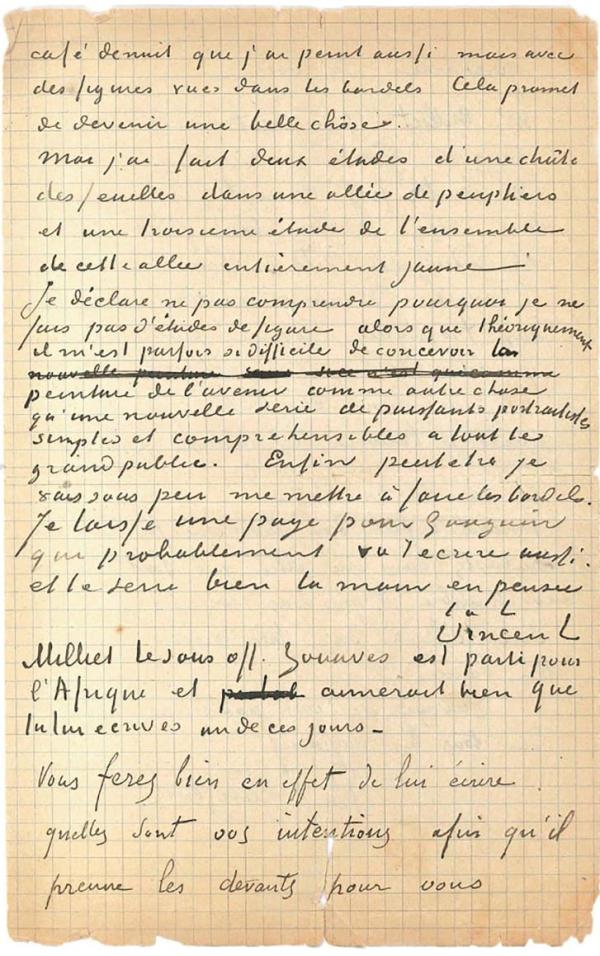 café de nuit que j'ai peint aussi mais avec
des figures vues dans les bordels Cela promet
de devenir une belle chôse.
Moi j'ai fait deux études d'une chûte
des feuilles dans une allée de peupliers
et une troisieme étude de l'ensemble
de cette allée entièrement jaune
Je déclare ne pas comprendre pourquoi je ne
fais pas d'études de figure alors que théoriquement
il m'est parfois si difficile de concevoir la
nouvelle peinture c'est que comme
peinture de l'avenir comme autre chose
qu'une nouvelle serie de puissants portraitistes
simples et comprehensibles à tout le
grand public. Enfin peutetre je
vais sous peu me mettre à faire les bordels.
Je laisse une page pour Gauguin
qui probablement va t'ecrire aussi.
et te serre bien la main en pensée
t. à t.
Vincent
Milliet le sous off. Zouaves est parti pour
l'Afrique et aimerait bien que
tu lui ecrives un de ces jours –
Vous ferez bien en effet de lui écrire
quelles sont vos intentions afin qu'il
prenne les devants pour vous